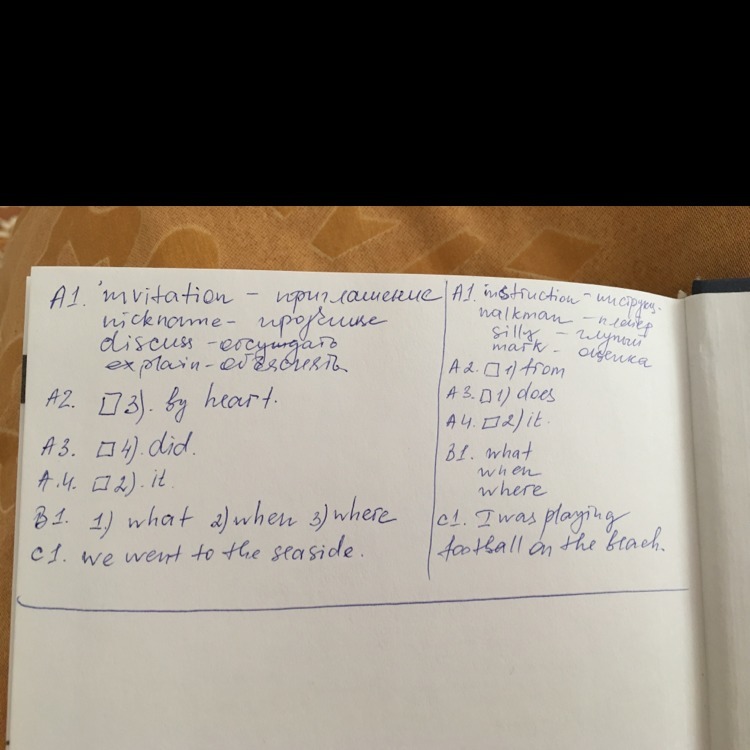 A1. invitation – приглашение
nickname – прозвище
discuss – обсуждать
explain – объяснять
A2. □ 3). by heart.
A3. □ 4). did.
A.4. □ 2). it
B1. 1) what 2) when 3) where
C1. we went to the seaside.
A1. instruction – инструкц.
walkman – плейер
silly – глупый
mark – оценка
A2. □ 1) from
A3. □ 1) does
A4. □ 2) it.
B1. what
when
where
C1. I was playing
football on the beach.